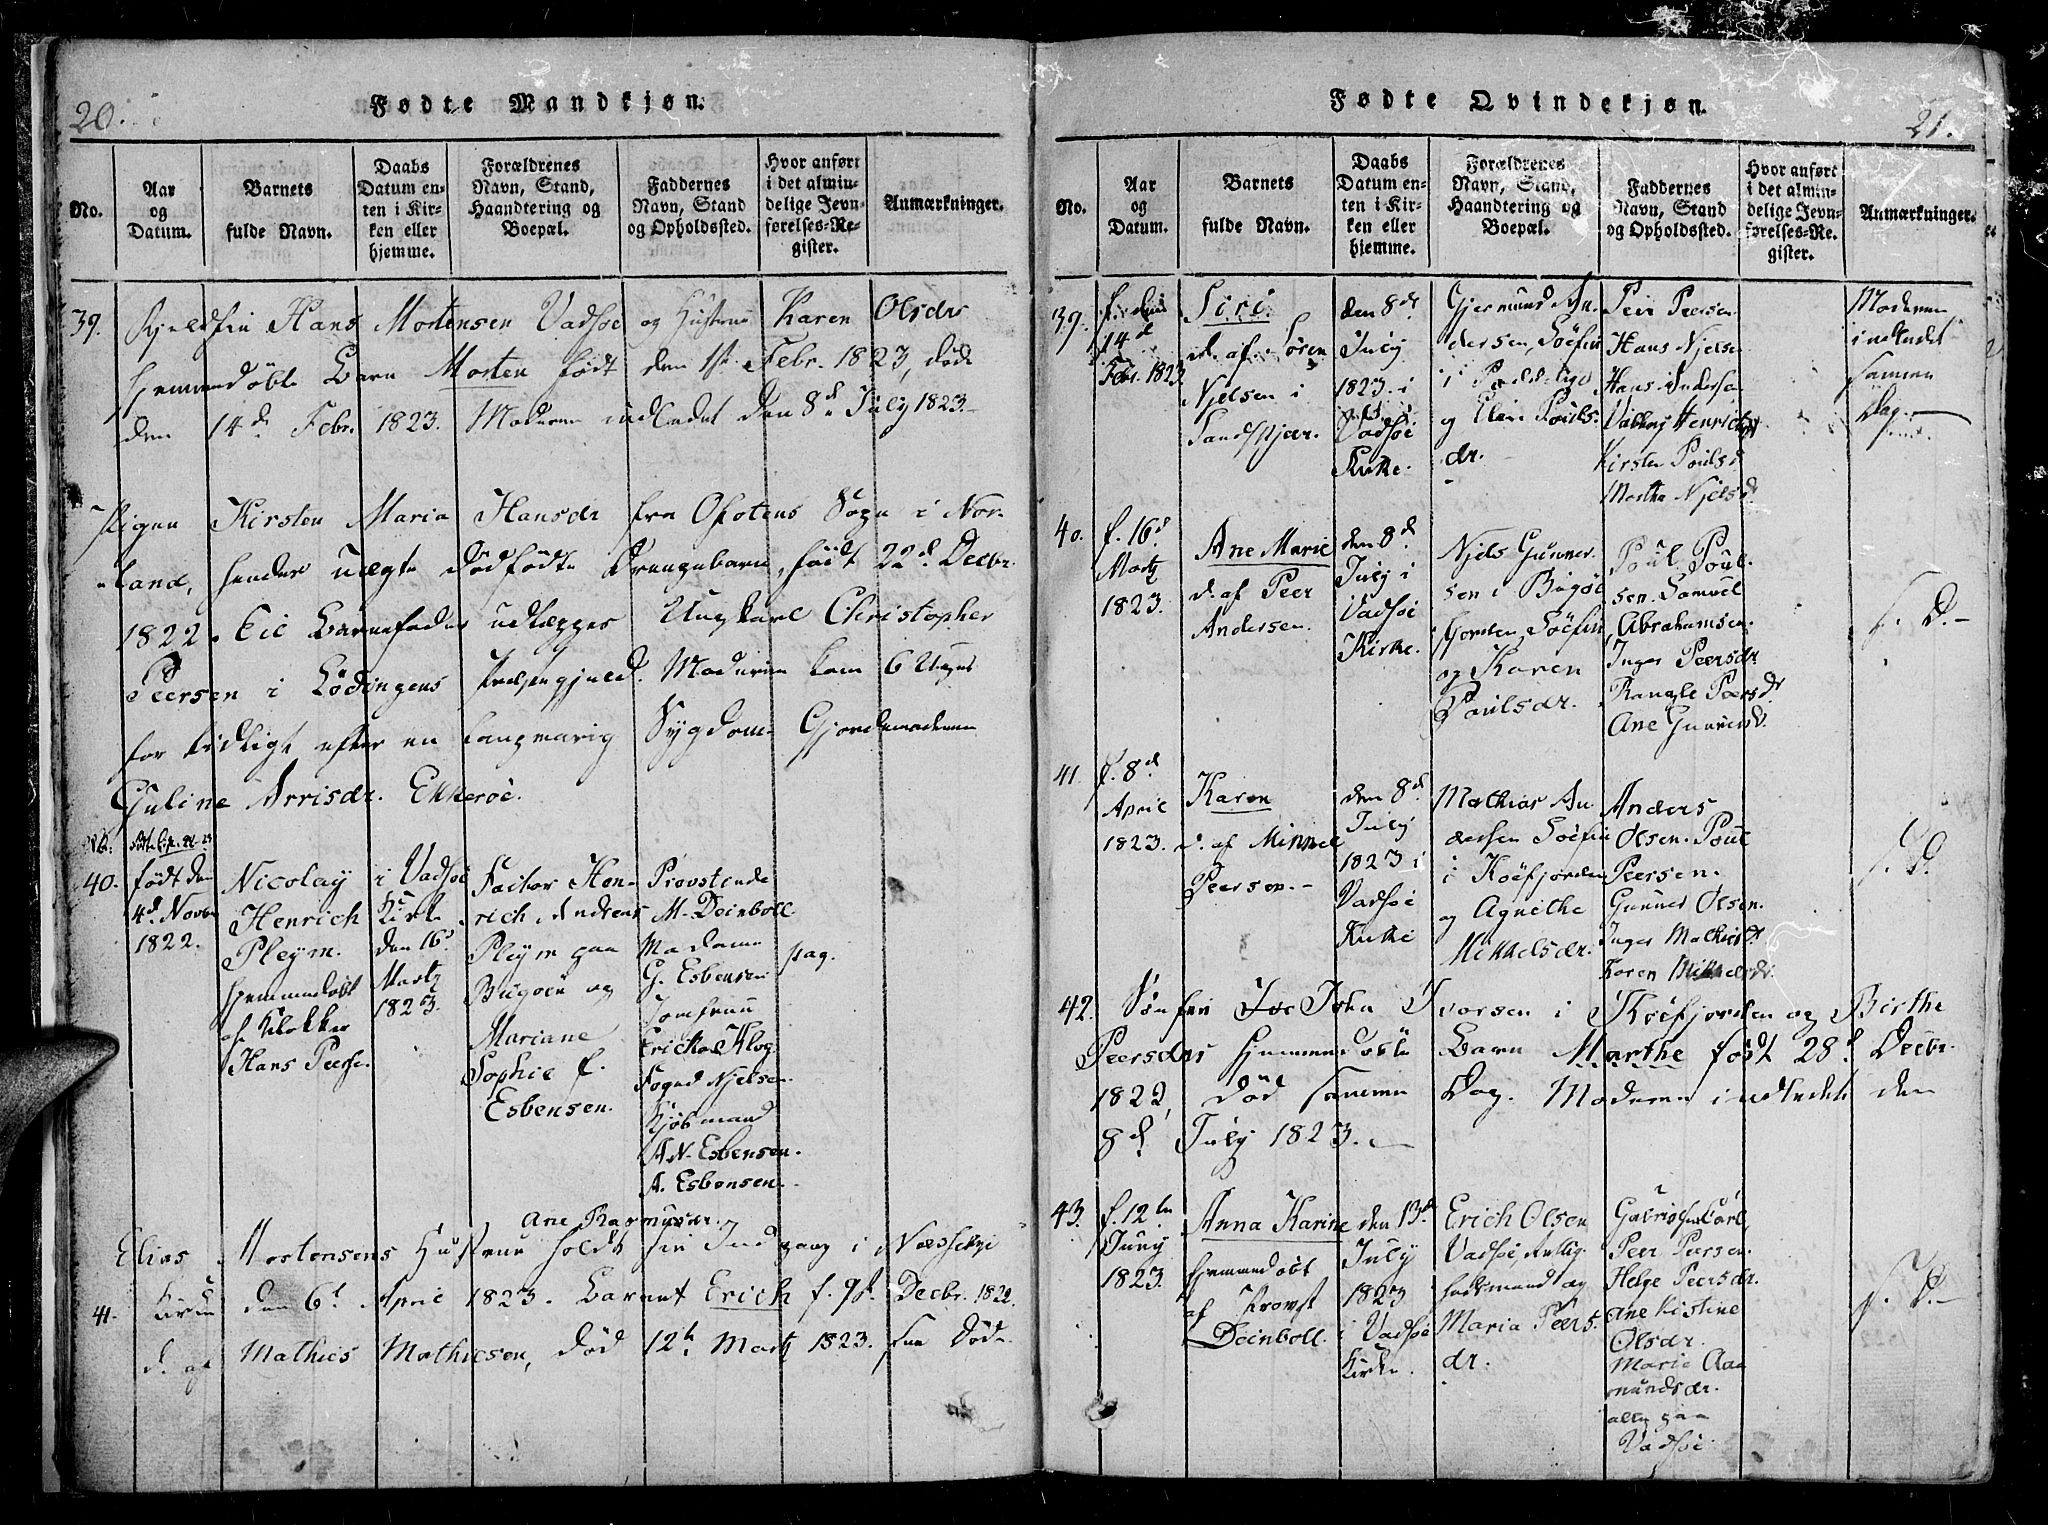 20.
Fødte Mandkjøn.
No.
Aar
og
Datum.
Barnets
fulde Navn.
Daabs
Datum en-
ten i Kir-
ken eller
hjemme.
Forældrenes
Navn, Stand,
Haandtering og
Boepæl.
Faddernes
Navn, Stand
og Opholdssted.
Hvor anført
i det almin-
delige Jevn-
førelses-Re-
gister.
Anmærkninger.
39. Hans Mortensen Vadsøe og Hustrue Karen Olsdrs
hjemmedøbte Barn Morten født den 1ste Febr. 1823, døde
den 14d. Febr. 1823. Moderen indledet den 8d. July 1823.
Pigen Kirsten Maria Hansdr fra Ofotens Sogn i Nor-
land, hendes uægte dødfødte Drengebarn, født 22d. Decbr.
1822. til Barnefader udlægges Ungkarl Christopher
Peersen i Lødingens Præstegjeld. Moderen kom 6 Uger
for tidligt efter en langvarig Sygdom. Gjordemoderen
Guline Arrisdr. Ekkerøe.
40.
født den
4d. Novbr
1822.
Nicolay
Henrich
Pleym.
hjemmedøbt
af Klokker
Hans Peerse.
i Vadsøe
Kirke
den 16d
Martz
1823.
Factor Hen-
rich Andreas
Pleym paa
Bugøen og
Mariane
Sophie f.
Esbensen.
Provstinde
M. Deinboll
Madame
G. Esbensen
Jomfrue
Ericka Klog
Foged Njelsen.
Kjøbmand
A.N. Esbensen.
A. Esbensen.
pag.
Ane Rasmusdr.
Elias Mortensens Hustrue holdt sin Indgang i Næsseby
41. Kirke den 6d. April 1823. Barnet Erich f. 9d. Decbr. 1822.
d. af Mathies Mathiesen, død 12te Martz 1823. før Døde
21.
Fødte Qvindekjøn.
No.
Aar
og
Datum.
Barnets
fulde Navn.
Daabs
Datum en-
ten i Kir-
ken eller
hjemme.
Forældrenes
Navn, Stand,
Haandtering og
Boepæl.
Faddernes
Navn, Stand
og Opholdssted.
Hvor anført
i det almin-
delige Jevn-
førelses-Re-
gister.
Anmærkninger.
39.
f. den
14d
Febr. 1823
Siri
d. af Søren
Njelsen i
Sandskjær.
den 8de
July
1823 i
Vadsøe
Kirke.
Gjermund An
dersen, Søefin
i
og Elen Pouls-
dr.
Peer Peersen
Hans Njelsen
Hans Andersen
Valborg Henrichsdr
Kirsten Poulsd
Martha Njelsd.
Moderen
indledet
samme
Dag.
40.
f. 16d
Martz
1823.
Ane Marie
d. af Peer
Andersen.
den 8d.
July i
Vadsøe
Kirke.
Njels Gunner-
sen i Bugøe
fjorden, Søefin
og Karen
Poulsdr.
Poul Poul-
sen. Samuel
Abrahamsen.
Inger Peersdr.
Rangle Peersdr
Ane Gunnersd.
s. D.
41.
f. 8d
April
1823.
Karen
d. af Minnel
Peersen.
den 8d
July
1823 i
Vadsøe
Kirke
Mathias An
dersen Søefin
i Kiøfjorden
og Agnethe
Mikkelsdr.
Anders
Olsen. Poul
Peersen.
Gunner Olsen.
Inger Mathisd.
Karen Mikkelsdr.
s. D.
42. Søefin John Iversen i Kiøfjorden og Birthe
Peersdrs hjemmedøbte Barn Marthe født 28d. Decbr.
1822, død samme Dag. Moderen indledet den
8d. July 1823.
43.
f. 12te
Juny
1823.
Anna Karine
hjemmedøbt
af Provst
Deinboll.
den 13de
July
1823
i Vadsøe
Kirke.
Erich Olsen
Vadsøe,
og
Maria Peers-
dr.
Carl
Peer Peersen.
Helge Peersdr.
Ane Kistine
Olsdr.
Marie Aa
mundsdr.
alle paa
Vadsøe.
s. D.